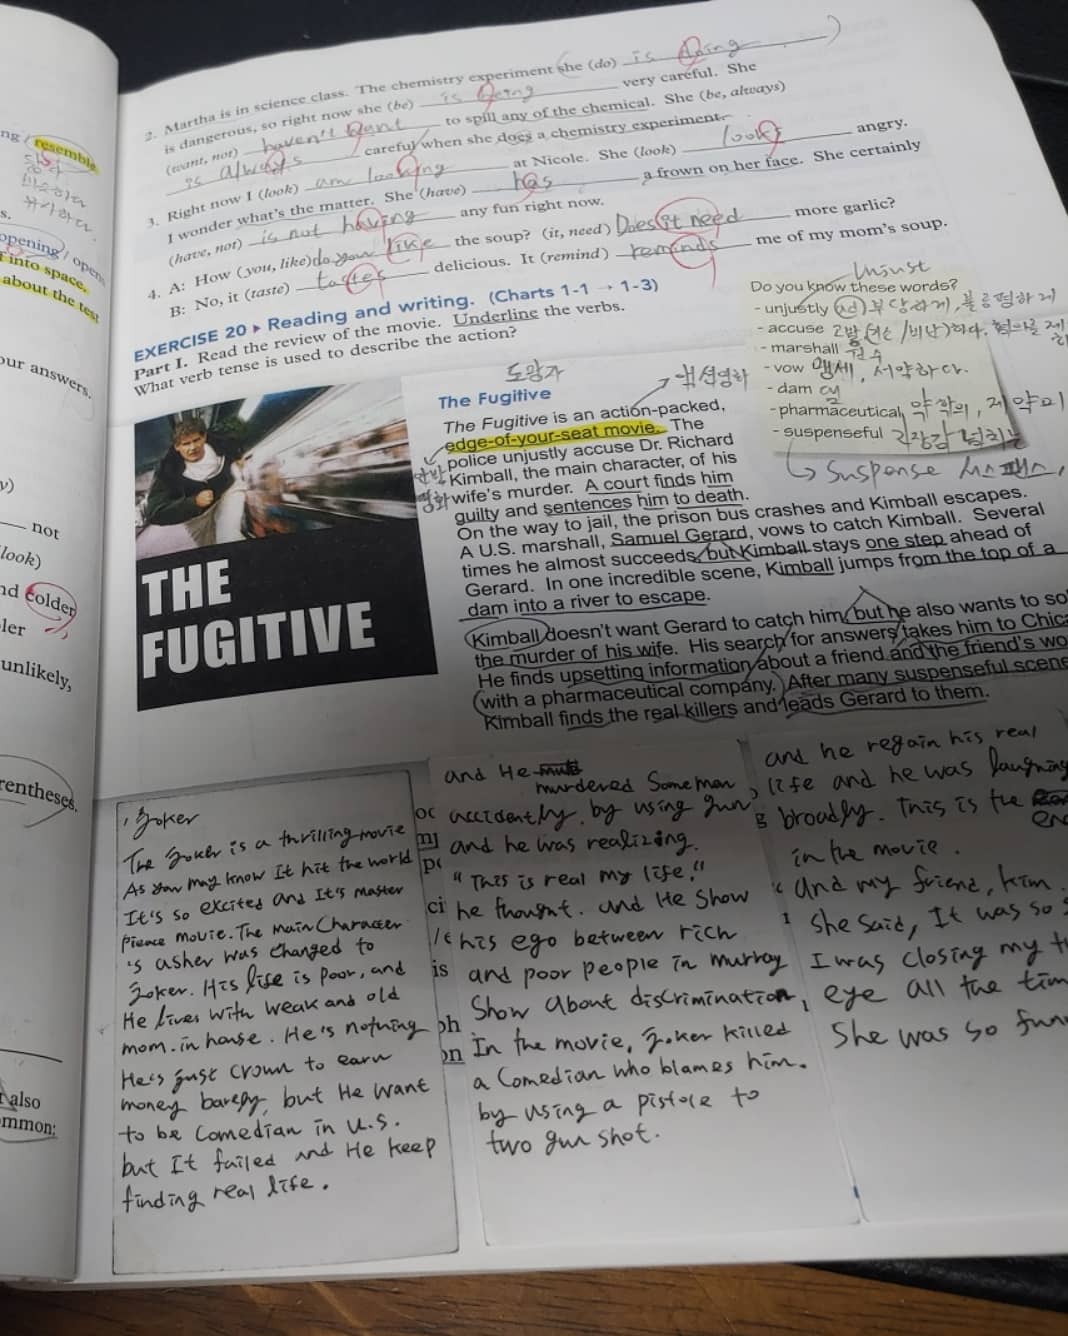 2. Martha is in science class. The chemistry experiment she (do) is doing
is dangerous, so right now she (be) is being very careful. She
(want, not) haven't want to spill any of the chemical. She (be, always)
is always careful when she does a chemistry experiment.
3. Right now I (look) am looking at Nicole. She (look) looks angry.
I wonder what's the matter. She (have) has a frown on her face. She certainly
(have, not) is not having any fun right now.
4. A: How (you, like) do you like the soup? (it, need) Does it need more garlic?
B: No, it (taste) tastes delicious. It (remind) reminds me of my mom's soup.
EXERCISE 20 ▸ Reading and writing. (Charts 1-1 → 1-3)
Part I. Read the review of the movie. Underline the verbs.
What verb tense is used to describe the action?
Do you know these words?
- unjustly 부당하게, 불공평하게
- accuse
- marshall
- vow 맹세, 서약하다.
- dam 댐
- pharmaceutical 약학의, 제약의
- suspenseful 긴장감 넘치는
suspense 서스팬스,
도망자
액션영화
The Fugitive
The Fugitive is an action-packed,
edge-of-your-seat movie. The
police unjustly accuse Dr. Richard
Kimball, the main character, of his
wife's murder. A court finds him
guilty and sentences him to death.
On the way to jail, the prison bus crashes and Kimball escapes.
A U.S. marshall, Samuel Gerard, vows to catch Kimball. Several
times he almost succeeds, but Kimball stays one step ahead of
Gerard. In one incredible scene, Kimball jumps from the top of a
dam into a river to escape.
Kimball doesn't want Gerard to catch him, but he also wants to so
the murder of his wife. His search for answers takes him to Chic
He finds upsetting information about a friend and the friend's wo
with a pharmaceutical company. After many suspenseful scene
Kimball finds the real killers and leads Gerard to them.
THE
FUGITIVE
Joker
The Joker is a thrilling movie
As you may know It hit the world
It's so excited and It's master
pieace movie. The main Character
's asher was changed to
Joker. His life is poor, and
He lives with weak and old
mom. in house. He's nothing
He's just crown to earn
money barely, but He want
to be Comedian in U.S.
but It failed and He keep
finding real life.
and He
murdered Some man
accidently, by using gun
and he was realizing.
"This is real my life."
he thought. and He Show
his ego between rich
and poor people in murray
Show about discrimination,
In the movie, Joker killed
a Comedian who blames him.
by using a pistole to
two gun shot.
and he regain his real
life and he was laughing
broadly. This is the
end
in the movie.
and my friend, kim.
She said, It was so
I was closing my
eye all the tim
She was so fun
resemble
opening / open
into space.
about the test
our answers.
not
look)
nd colder
ler
unlikely,
rentheses.
also
mmon: